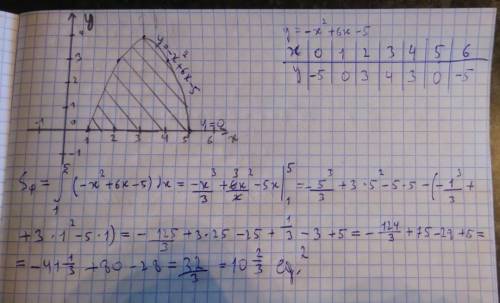 y
4
3
2
1
0
-1
1
2
3
4
5
6
x
y=-x²+6x-5
y=0
y=-x²+6x-5
x 0 1 2 3 4 5 6
y -5 0 3 4 3 0 -5
Sф = ∫₁⁵ (-x²+6x-5)dx = -x³/3 + 6x²/2 - 5x |₁⁵ = -5³/3 + 3·5² - 5·5 - (-1³/3 +
+ 3·1² - 5·1) = -125/3 + 3·25 - 25 + 1/3 - 3 + 5 = -124/3 + 75 - 28 + 5 =
= -41 1/3 + 80 - 28 = 32/3 = 10 2/3 ед.²